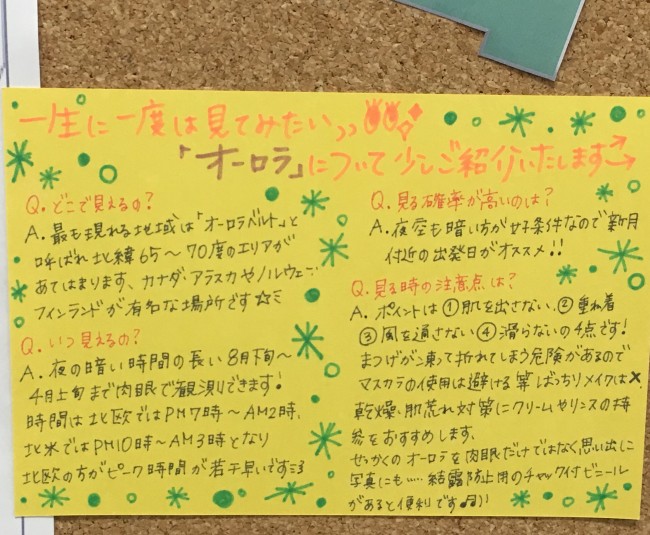 一生に一度は見てみたい››
「オーロラ」について少しご紹介いたします→
Q. どこで見えるの?
A. 最も現れる地域は「オーロラベルト」と
呼ばれ北緯65〜70度のエリアが
あてはまります、カナダ、アラスカやノルウェー
フィンランドが有名な場所です☆ミ
Q. いつ見えるの?
A. 夜の暗い時間の長い8月下旬〜
4月上旬まで肉眼で観測できます!
時間は北欧ではPM7時〜AM2時、
北米ではPM10時〜AM3時となり
北欧の方がピーク時間が若干早いです
Q. 見る確率が高いのは?
A. 夜空も暗い方が好条件なので新月
付近の出発日がオススメ!!
Q. 見る時の注意点は?
A. ポイントは①肌を出さない、②重ね着
③風を通さない④滑らないの4点です!
まつげが凍って折れてしまう危険があるので
マスカラの使用は避ける等ばっちりメイクは×、
乾燥、肌荒れ対策にクリームやリンスの持
参をおすすめします、
せっかくのオーロラを肉眼だけではなく思い出に
写真にも……結露防止用のチャック付ビニール
があると便利です♫